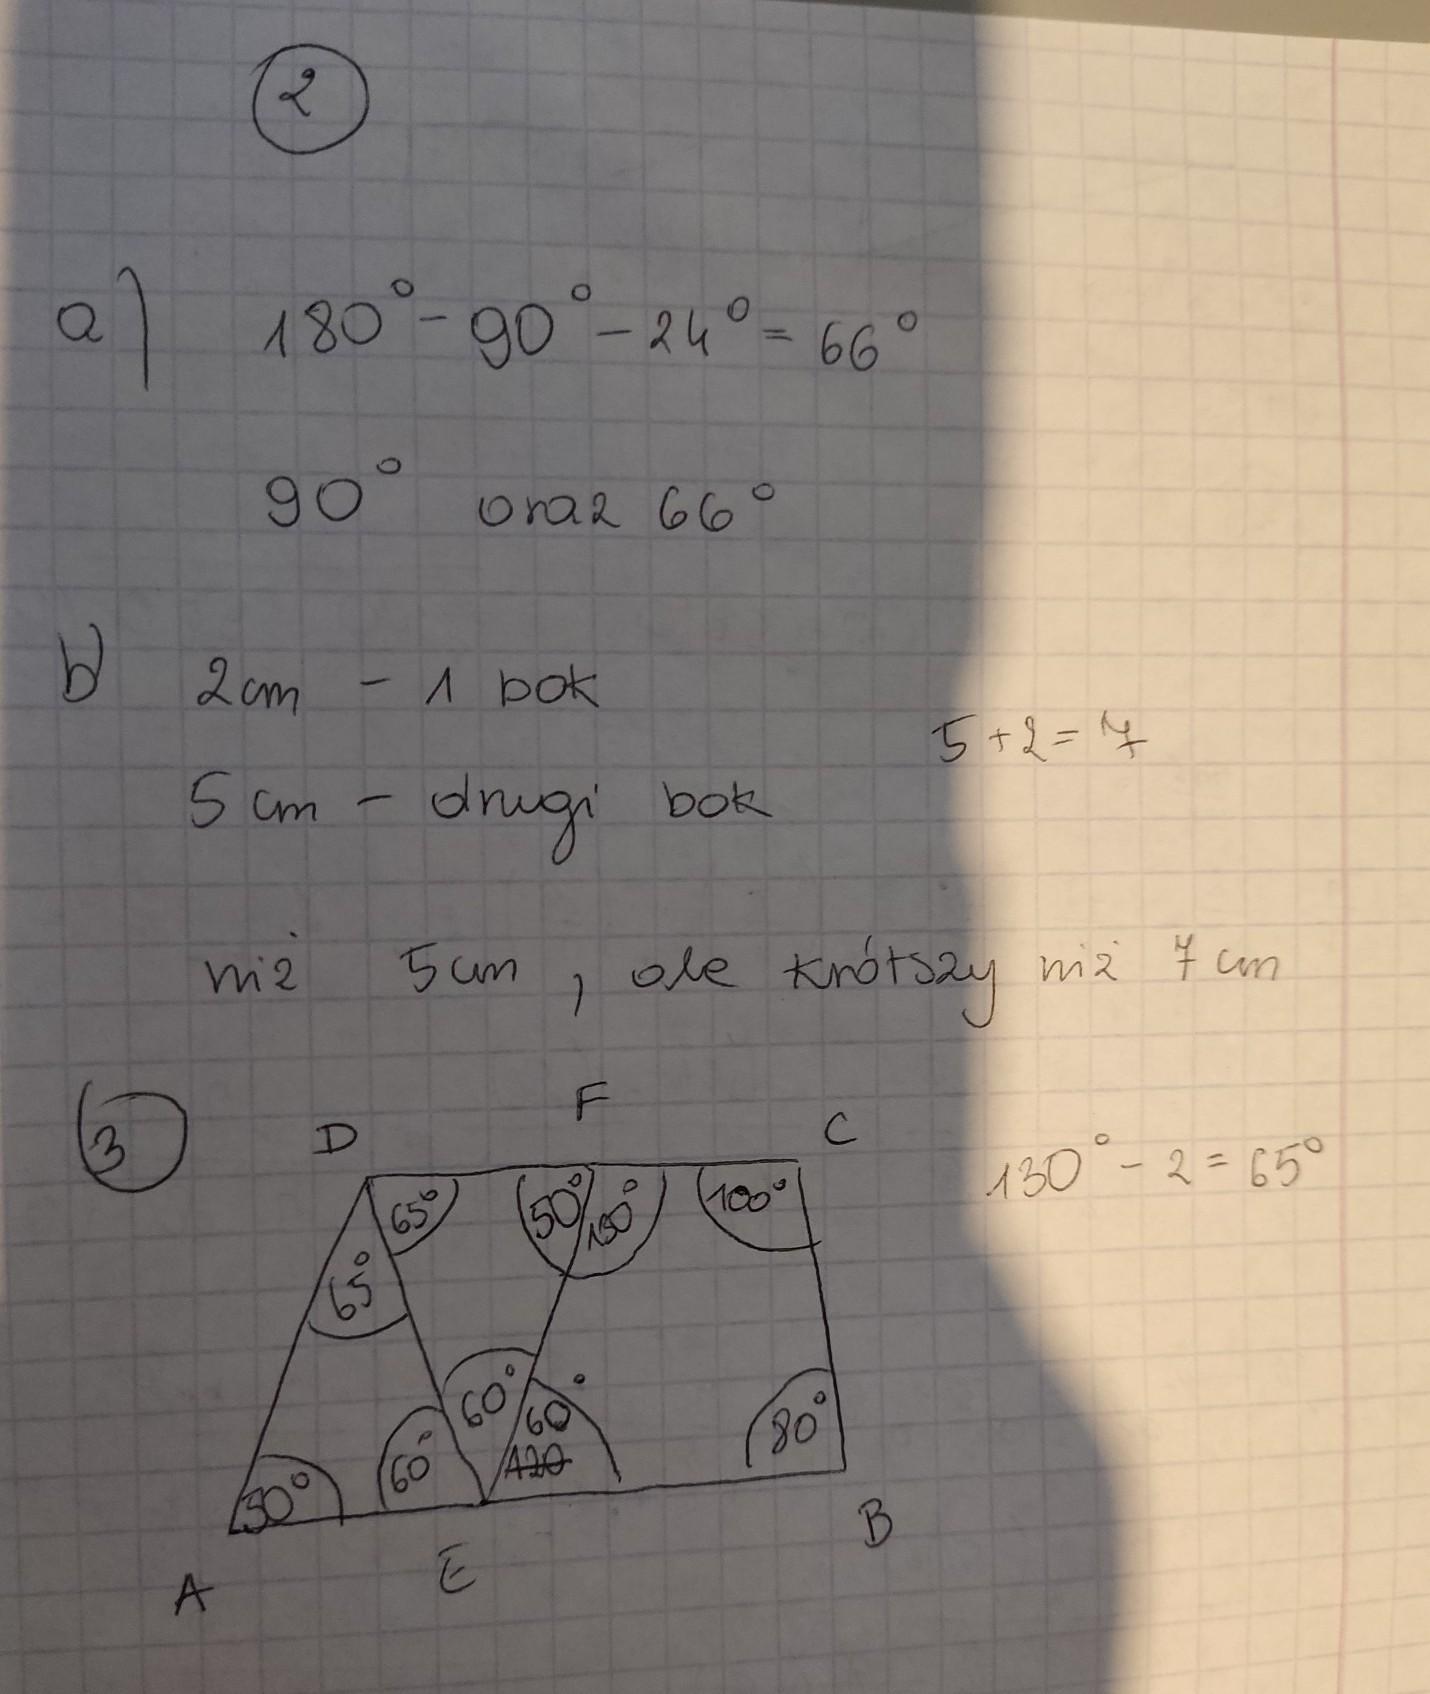 2
a) 180° - 90° - 24° = 66°
90° oraz 66°
b) 2cm - 1 bok
5 + 2 = 7
5cm - drugi bok
niż 5cm, ale krótszy niż 7cm
3
D F C
130° - 2 = 65°
65° 50° 130° 100°
65°
60° 60° 80°
50° 60° 120
A E B